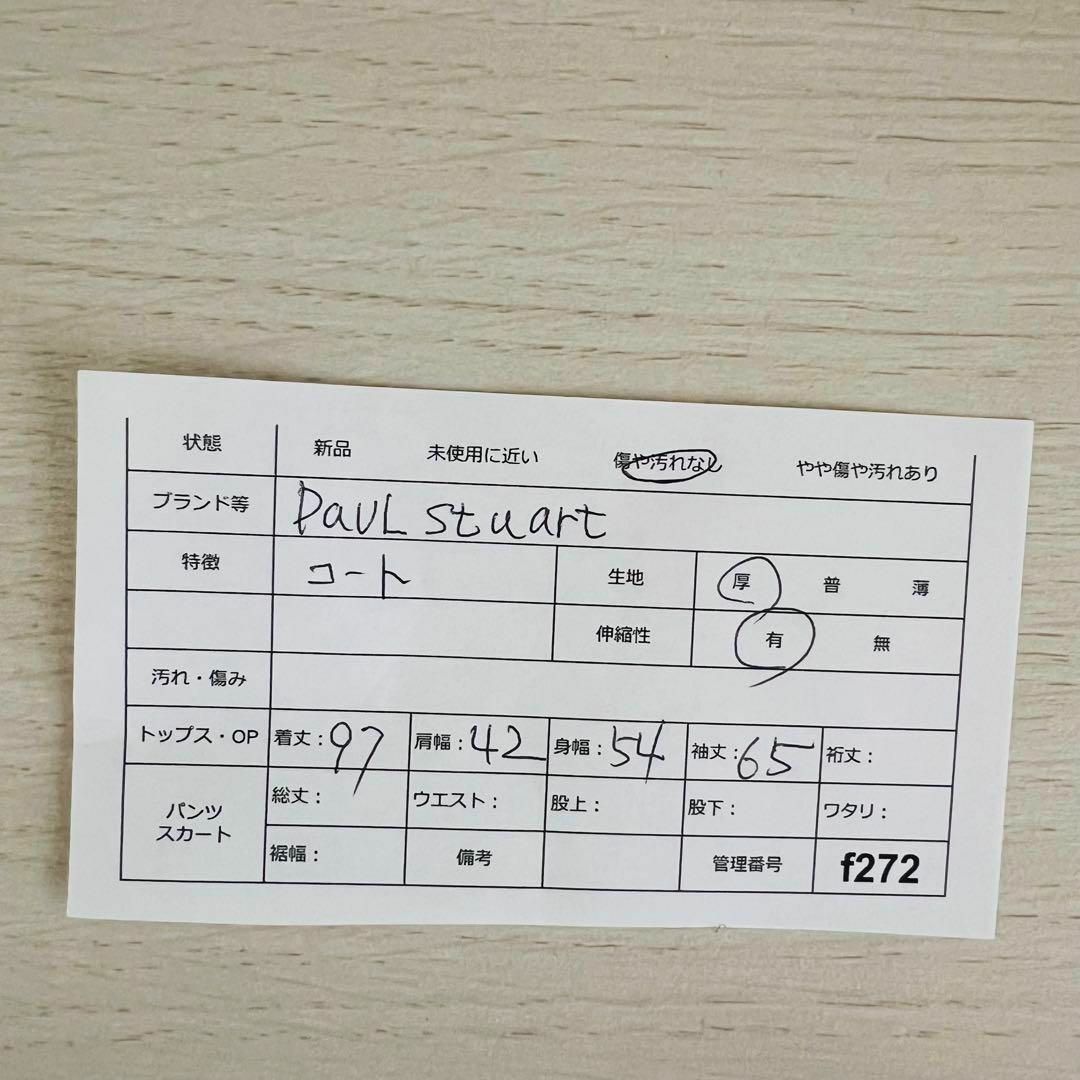 状態 新品 未使用に近い 傷や汚れなし やや傷や汚れあり
ブランド等 PauL stuart
特徴 コート 生地 厚 普 薄
伸縮性 有 無
汚れ・傷み
トップス・OP 着丈：97 肩幅：42 身幅：54 袖丈：65 裄丈：
パンツ スカート 総丈： ウエスト： 股上： 股下： ワタリ：
裾幅： 備考 管理番号 f272